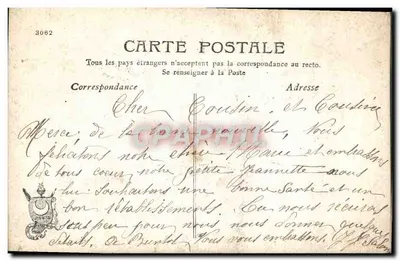 3062
CARTE POSTALE
Tous les pays étrangers n'acceptent pas la correspondance au recto.
Se renseigner à la Poste
Correspondance
Adresse
Cher Cousin, et Cousine
Merci, de ta nouvelle, Nous
félicitons notre Marie et embrassons
de tous coeur, notre petite Jeannette nous
lui souhaitons une bonne Santé et un
bon établissement.
sous peu pour nous donner quelque
détails, de Nous vous embrassons.